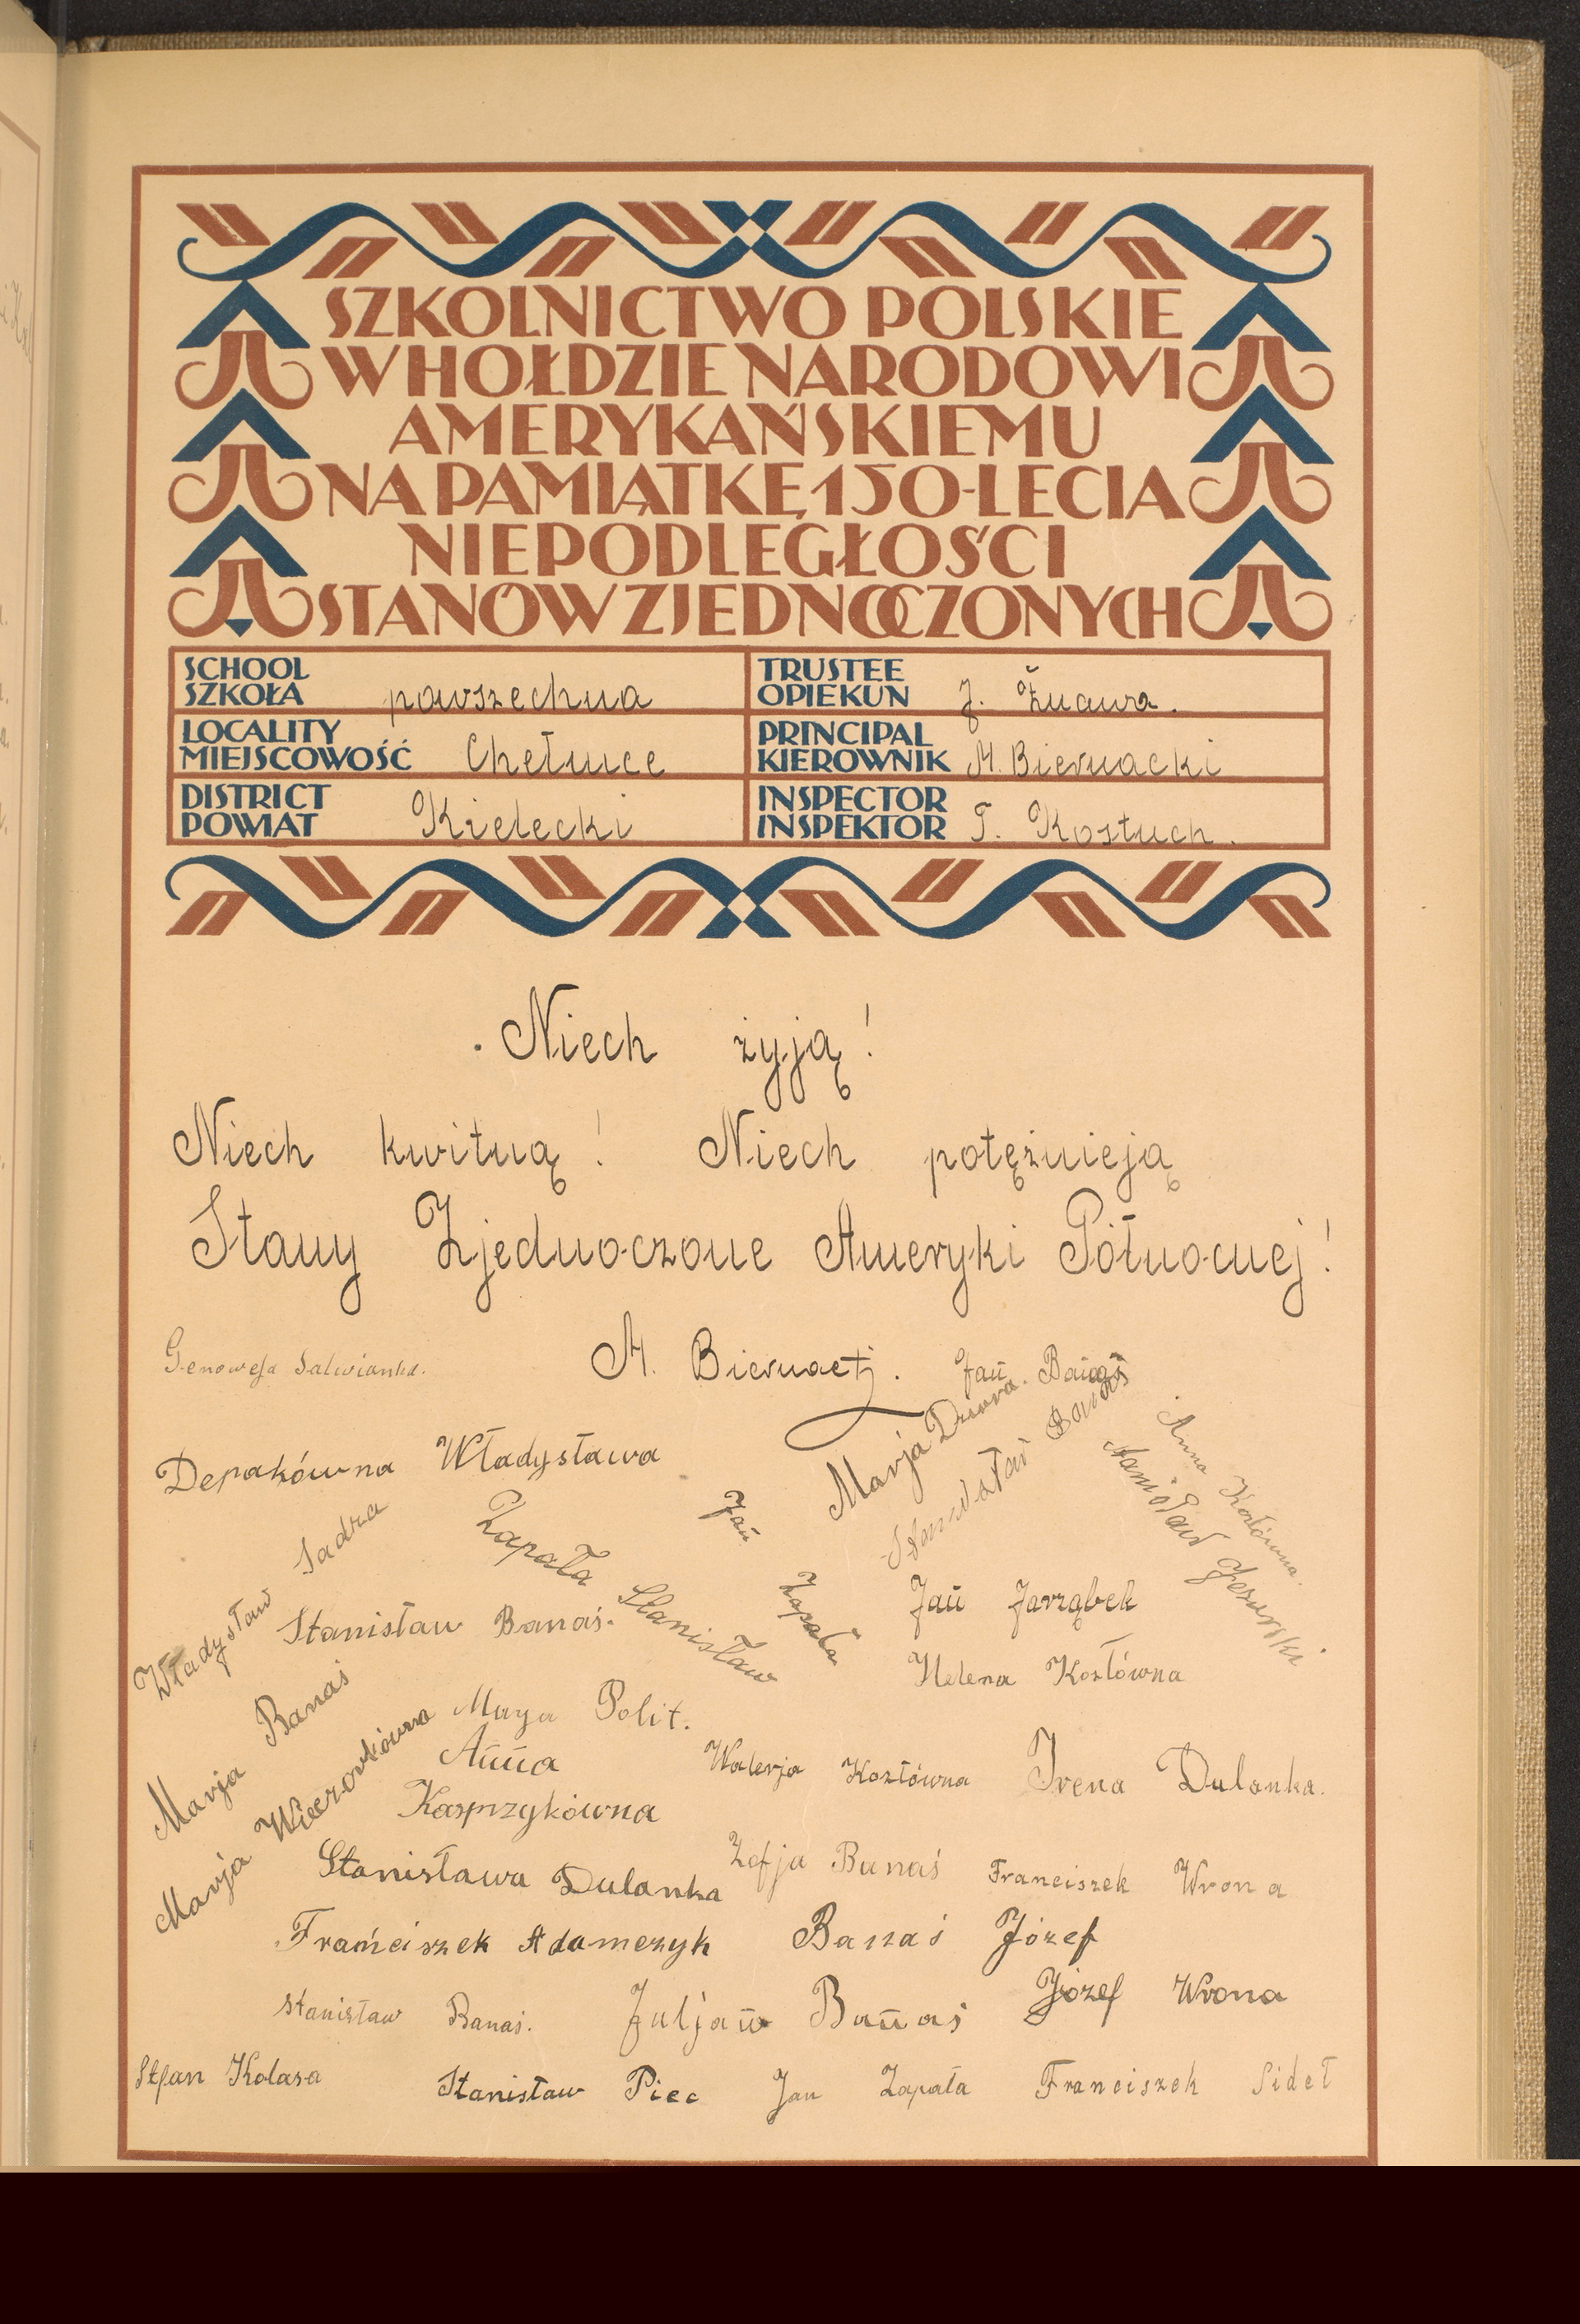 SZKOLNICTWO POLSKIE
W HOŁDZIE NARODOWI
AMERYKAŃSKIEMU
NA PAMIĄTKĘ 150-LECIA
NIEPODLEGŁOŚCI
STANÓW ZJEDNOCZONYCH
SCHOOL
SZKOŁA powszechna
TRUSTEE
OPIEKUN J. Żuawa.
LOCALITY
MIEJSCOWOŚĆ Chełmce
PRINCIPAL
KIEROWNIK M. Biernacki
DISTRICT
POWIAT Kielecki
INSPECTOR
INSPEKTOR T. Kostuch.
Niech żyją!
Niech kwitną! Niech potężnieją
Stany Zjednoczone Ameryki Północnej!
Genowefa Salwianka.
M. Biernacki.
Jan Banaś
Marja Dziura.
Stanisław Banaś
Anna Kozłówna.
Stanisław Jesierski
Depakówna Władysława
Władysław Sadza
Zapała Stanisław
Jan Zapała
Stanisław Banaś.
Jan Jarząbek
Helena Kozłówna
Marja Banaś
Marja Wieczorkówna
Marya Polit.
Anna
Kasprzykówna
Walerja Kozłówna
Irena Dulanka.
Stanisława Dulanka
Zofja Banaś
Franciszek Wrona
Franciszek Adamczyk
Banaś Józef
Stanisław Banaś.
Juljan Banaś
Józef Wrona
Stfan Kolasa
Stanisław Piec
Jan Zapała
Franciszek Sideł